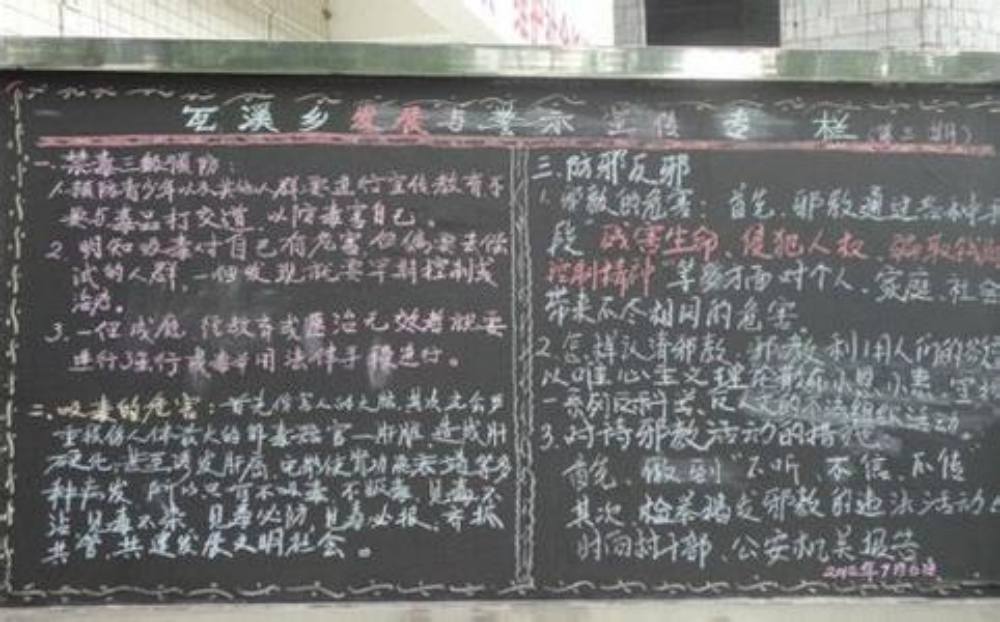 瓦溪乡发展与警示宣传专栏(第三期)
一.禁毒三级预防:
人预防青少年以及其他人群要进行宣传教育不
要与毒品打交道,以防毒害自己。
2.明知吸毒对自己有危害但偏要去偿
试的人群,一但发现就要早期控制或
治疗。
3.一但成瘾,经教育或医治无效者就要
进行强行戒毒并用法律手段进行。
二.吸毒的危害:首先伤害人的大脑,其次还会严
重损伤人体最大的解毒器官—肝脏,造成肝
硬化,甚至诱发肝癌,
种病发,所以只有不吸毒,不贩毒,见毒不
沾,见毒不染,见毒必防,见毒必报,齐抓
共管,共建发展文明社会。
三.防邪反邪
1.邪教的危害:首先,邪教通过各种手
段残害生命、侵犯人权、骗取钱财
控制精神等多方面对个人、家庭、社会
带来不尽相同的危害
2.怎样认清邪教,邪教利用人们的
以唯心主义理论散布小恩小惠,宣扬
一系列反科学、反人类的
3.对待邪教活动的措施
首先,做到"不听、不信、不传"
其次,检举揭发邪教的违法活动
时向村干部、公安机关报告
2012年9月6日